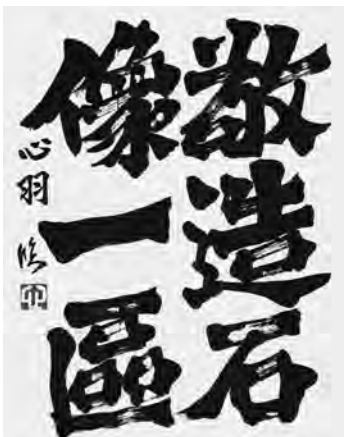 敬造石
像一區
心羽臨